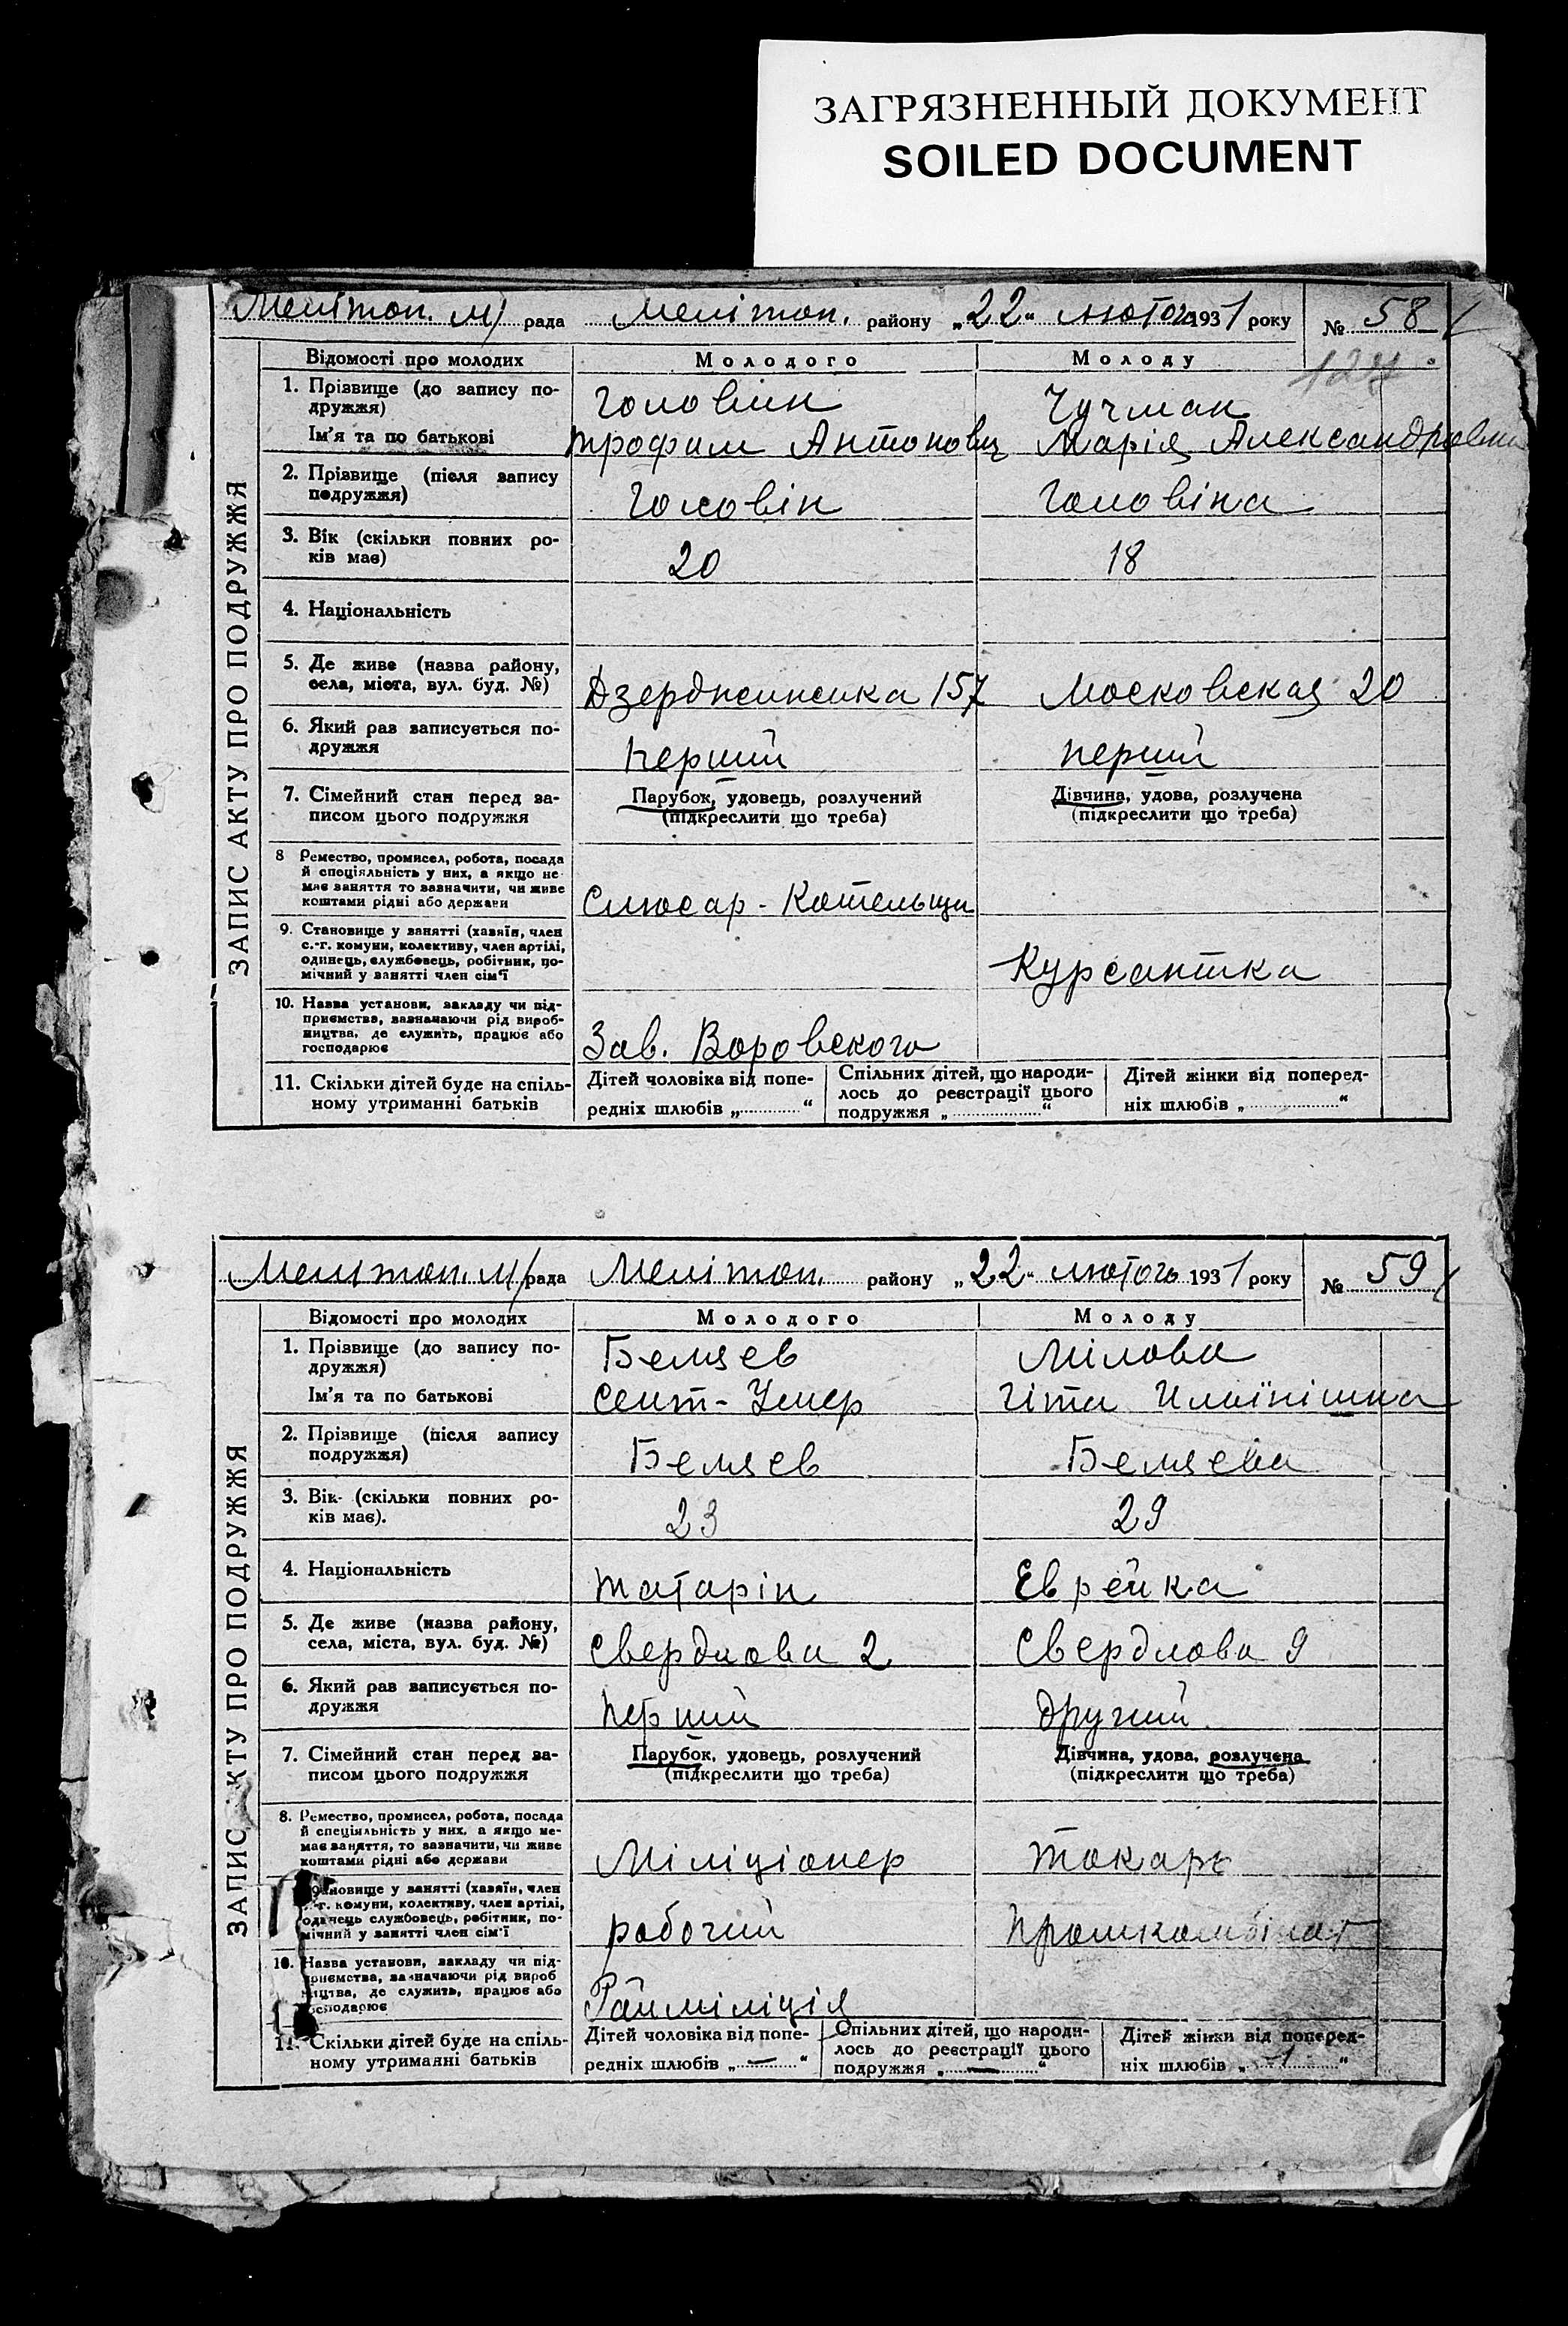 ЗАГРЯЗНЕННЫЙ ДОКУМЕНТ
SOILED DOCUMENT
Мелітоп. м/ рада Мелітоп. району „22“ лютого 1931 року № 58
127
ЗАПИС АКТУ ПРО ПОДРУЖЖЯ
Відомості про молодих Молодого Молоду
1. Прізвище (до запису по-
дружжя) Головін Чучман
Ім'я та по батькові Трофим Антонович Марія Александровна
2. Прізвище (після запису
подружжя) Головін Головіна
3. Вік (скільки повних ро-
ків має) 20 18
4. Національність
5. Де живе (назва району,
села, міста, вул. буд. №) Дзержинська 157 Московская 20
6. Який раз записується по-
дружжя перший перший
7. Сімейний стан перед за-
писом цього подружжя
Парубок, удовець, розлучений
(підкреслити що треба)
Дівчина, удова, розлучена
(підкреслити що треба)
8 Ремество, промисел, робота, посада
й спеціяльність у них, а якщо не
має заняття то зазначити, чи живе
коштами рідні або держави Слюсар-Котельщи
9. Становище у занятті (хазяїн, член
с.-г. комуни, колективу, член артілі,
одинець, службовець, робітник, по-
мічний у занятті член сім'ї Курсантка
10. Назва установи, закладу чи під-
приємства, зазначаючи рід вироб-
ництва, де служить, працює або
господарює Зав. Воровского
11. Скільки дітей буде на спіль-
ному утриманні батьків
Дітей чоловіка від попе-
редніх шлюбів „ “
Спільних дітей, що народи-
лось до реєстрації цього
подружжя „ “
Дітей жінки від поперед-
ніх шлюбів „ “
Мелітоп. м/ рада Мелітоп. району „22“ лютого 1931 року № 59
ЗАПИС АКТУ ПРО ПОДРУЖЖЯ
Відомості про молодих Молодого Молоду
1. Прізвище (до запису по-
дружжя) Беляев Мілова
Ім'я та по батькові Сеит-Умер Гіта
2. Прізвище (після запису
подружжя) Беляев Беляева
3. Вік (скільки повних ро-
ків має). 23 29
4. Національність татарін Еврейка
5. Де живе (назва району,
села, міста, вул. буд. №) Свердлова 2 Свердлова 9
6. Який раз записується по-
дружжя перший другий
7. Сімейний стан перед за-
писом цього подружжя
Парубок, удовець, розлучений
(підкреслити що треба)
Дівчина, удова, розлучена
(підкреслити що треба)
8. Ремество, промисел, робота, посада
й спеціяльність у них, а якщо не-
має заняття, то зазначити, чи живе
коштами рідні або держави Міліціонер Токарь
становище у занятті (хазяїн, член
с.-г. комуни, колективу, член артілі,
одинець службовець, робітник, по-
мічний у занятті член сім'ї рабочий Промкомбінат
10. Назва установи, закладу чи під-
приємства, зазначаючи рід вироб
ництва, де служить, працює або
господарює Райміліція
11. Скільки дітей буде на спіль-
ному утриманні батьків
Дітей чоловіка від попе-
редніх шлюбів „—“
Спільних дітей, що народи-
лось до реєстрації цього
подружжя „—“
Дітей жінки від поперед-
ніх шлюбів „1“